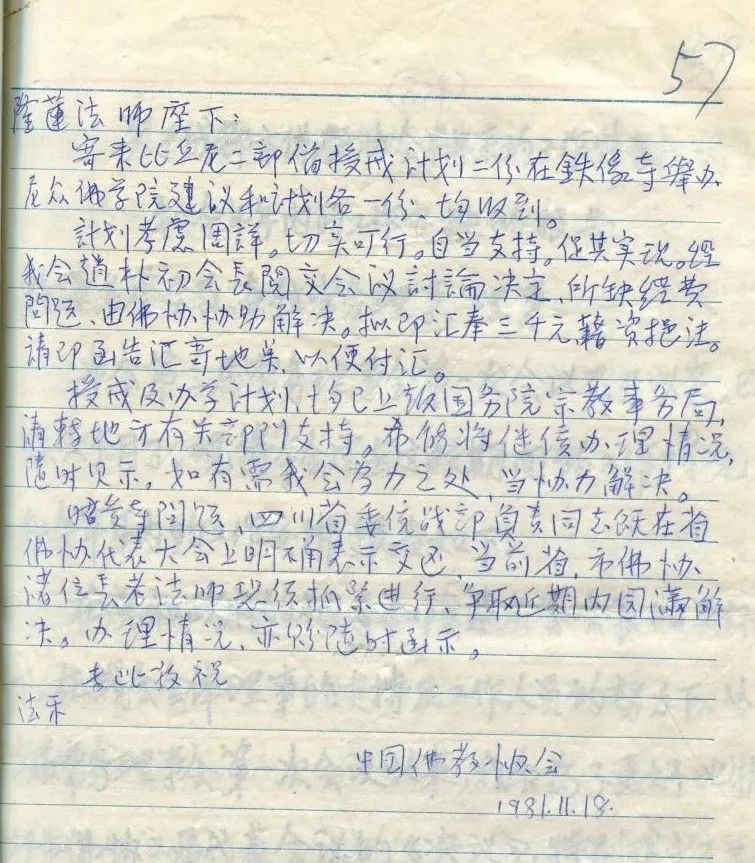 57
隆蓮法师座下：
寄来比丘尼二部僧授戒计划二份、在鉄像寺舉办
尼众佛学院建议和计划各一份、均收到。
计划考慮周詳。切实可行。自当支持。促其实现。经
我会趙朴初会長閱交会议討論决定、所缺经费
問题、由佛协协助解决。拟即汇奉三千元藉资挹注。
請即函告汇寄地点、以便付汇。
授戒及办学计划、均已上报国务院宗教事务局，
请转地方有关部門支持。希修将继续办理情况，
随时见示。如有需我会為力之处、当协力解决。
昭觉寺問题、四川省委统战部負责同志既在省
佛协代表大会上明确表示交还、当前省、市佛协、
诸位長老法师现须抓紧進行、争取近期内圆满解
决。办理情况、亦盼随时函示。
专此敬祝
法乐
中国佛教协会
1981.11.18.